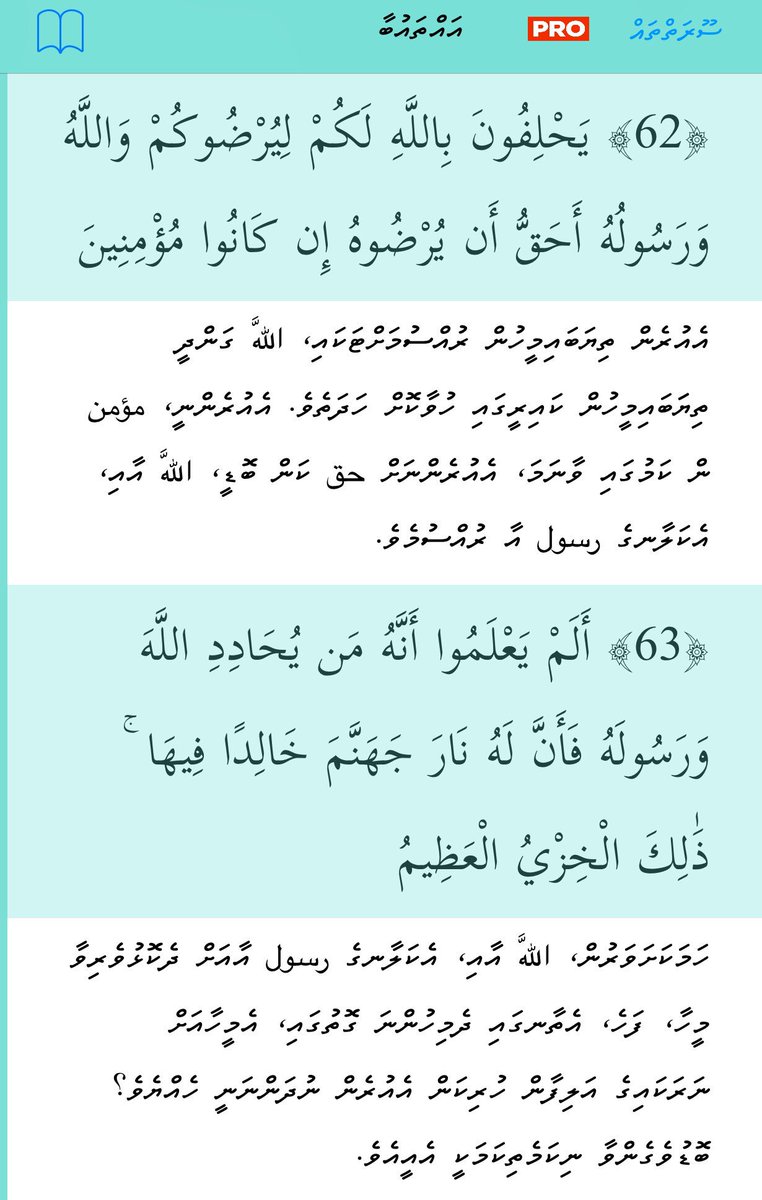 ސޫރަތްތައް PRO އައްތައުބާ
﴿62﴾ يَحْلِفُونَ بِاللَّهِ لَكُمْ لِيُرْضُوكُمْ وَاللَّهُ
وَرَسُولُهُ أَحَقُّ أَن يُرْضُوهُ إِن كَانُوا مُؤْمِنِينَ
އެއުރެން ތިޔަބައިމީހުން ރުއްސުމަށްޓަކައި، اللَّه ގަންދީ
ތިޔަބައިމީހުން ކައިރީގައި ހުވާކޮށް ހަދަތެވެ. އެއުރެންނީ، مؤمن
ން ކަމުގައި ވާނަމަ، އެއުރެންނަށް حق ކަން ބޮޑީ، اللَّه އާއި،
އެކަލާނގެ رسول އާ ރުއްސުމެވެ.
﴿63﴾ أَلَمْ يَعْلَمُوا أَنَّهُ مَن يُحَادِدِ اللَّهَ
وَرَسُولَهُ فَأَنَّ لَهُ نَارَ جَهَنَّمَ خَالِدًا فِيهَا ۚ
ذَٰلِكَ الْخِزْيُ الْعَظِيمُ
ހަމަކަށަވަރުން، اللَّه އާއި، އެކަލާނގެ رسول އާއަށް ދެކޮޅުވެރިވާ
މީހާ، ފަހެ، އެތާނގައި ދެމިހުންނަ ގޮތުގައި، އެމީހާއަށް
ނަރަކައިގެ އަލިފާން ހުރިކަން އެއުރެން ނުދަންނަނީ ހެއްޔެވެ؟
ބޮޑުވެގެންވާ ނިކަމެތިކަމަކީ އެއީއެވެ.